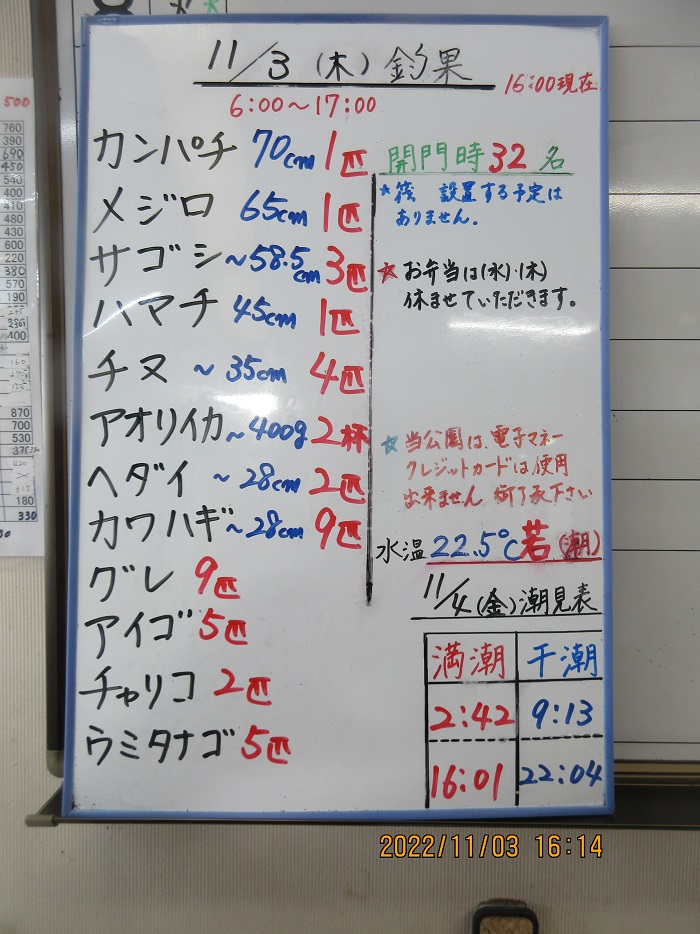 11/3(木)釣果
16:00現在
6:00〜17:00
カンパチ 70cm 1匹
メジロ 65cm 1匹
サゴシ 〜58.5cm 3匹
ハマチ 45cm 1匹
チヌ 〜35cm 4匹
アオリイカ 〜400g 2杯
ヘダイ 〜28cm 2匹
カワハギ 〜28cm 9匹
グレ 9匹
アイゴ 5匹
チャリコ 2匹
ウミタナゴ 5匹
開門時32名
★筏 設置する予定は
ありません。
★お弁当は(水)・(木)
休ませていただきます。
★当公園は、電子マネー
クレジットカードは使用
出来ません 御了承下さい
水温 22.5℃ 若(潮)
11/4(金)潮見表
満潮 干潮
2:42 9:13
16:01 22:04
500
760
390
690
450
540
400
410
480
430
600
220
380
570
190
400
870
700
530
180
330
2022/11/03 16:14